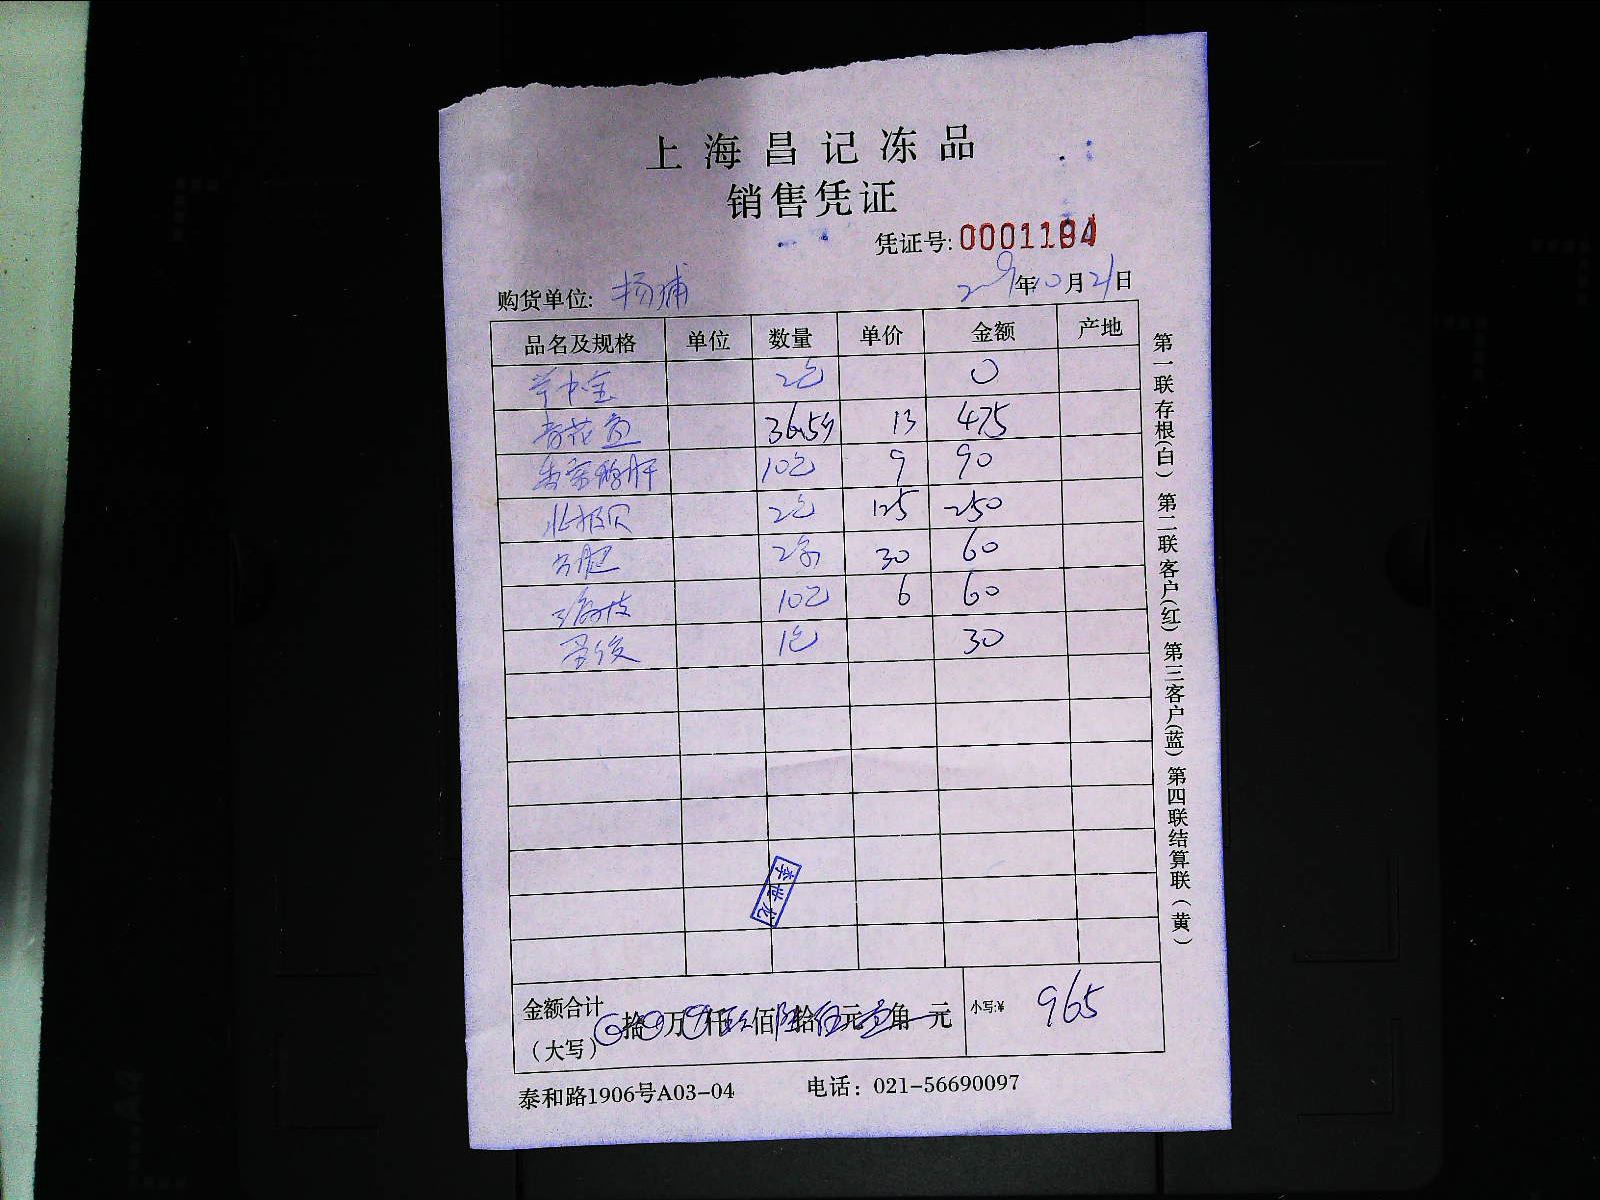 上海昌记冻品
销售凭证
凭证号:0001194
购货单位: 杨浦 年10月21日
品名及规格 单位 数量 单价 金额 产地
2包 0
青花鱼 36.5斤 13 475
10包 9 90
北极贝 2包 125 250
2条 30 60
10包 6 60
1包 30
李世龙
金额合计
(大写) 拾 万 仟 佰 拾 元 角 元 小写:¥ 965
泰和路1906号A03-04 电话: 021-56690097
第一联存根(白) 第二联客户(红) 第三客户(蓝) 第四联结算联(黄)